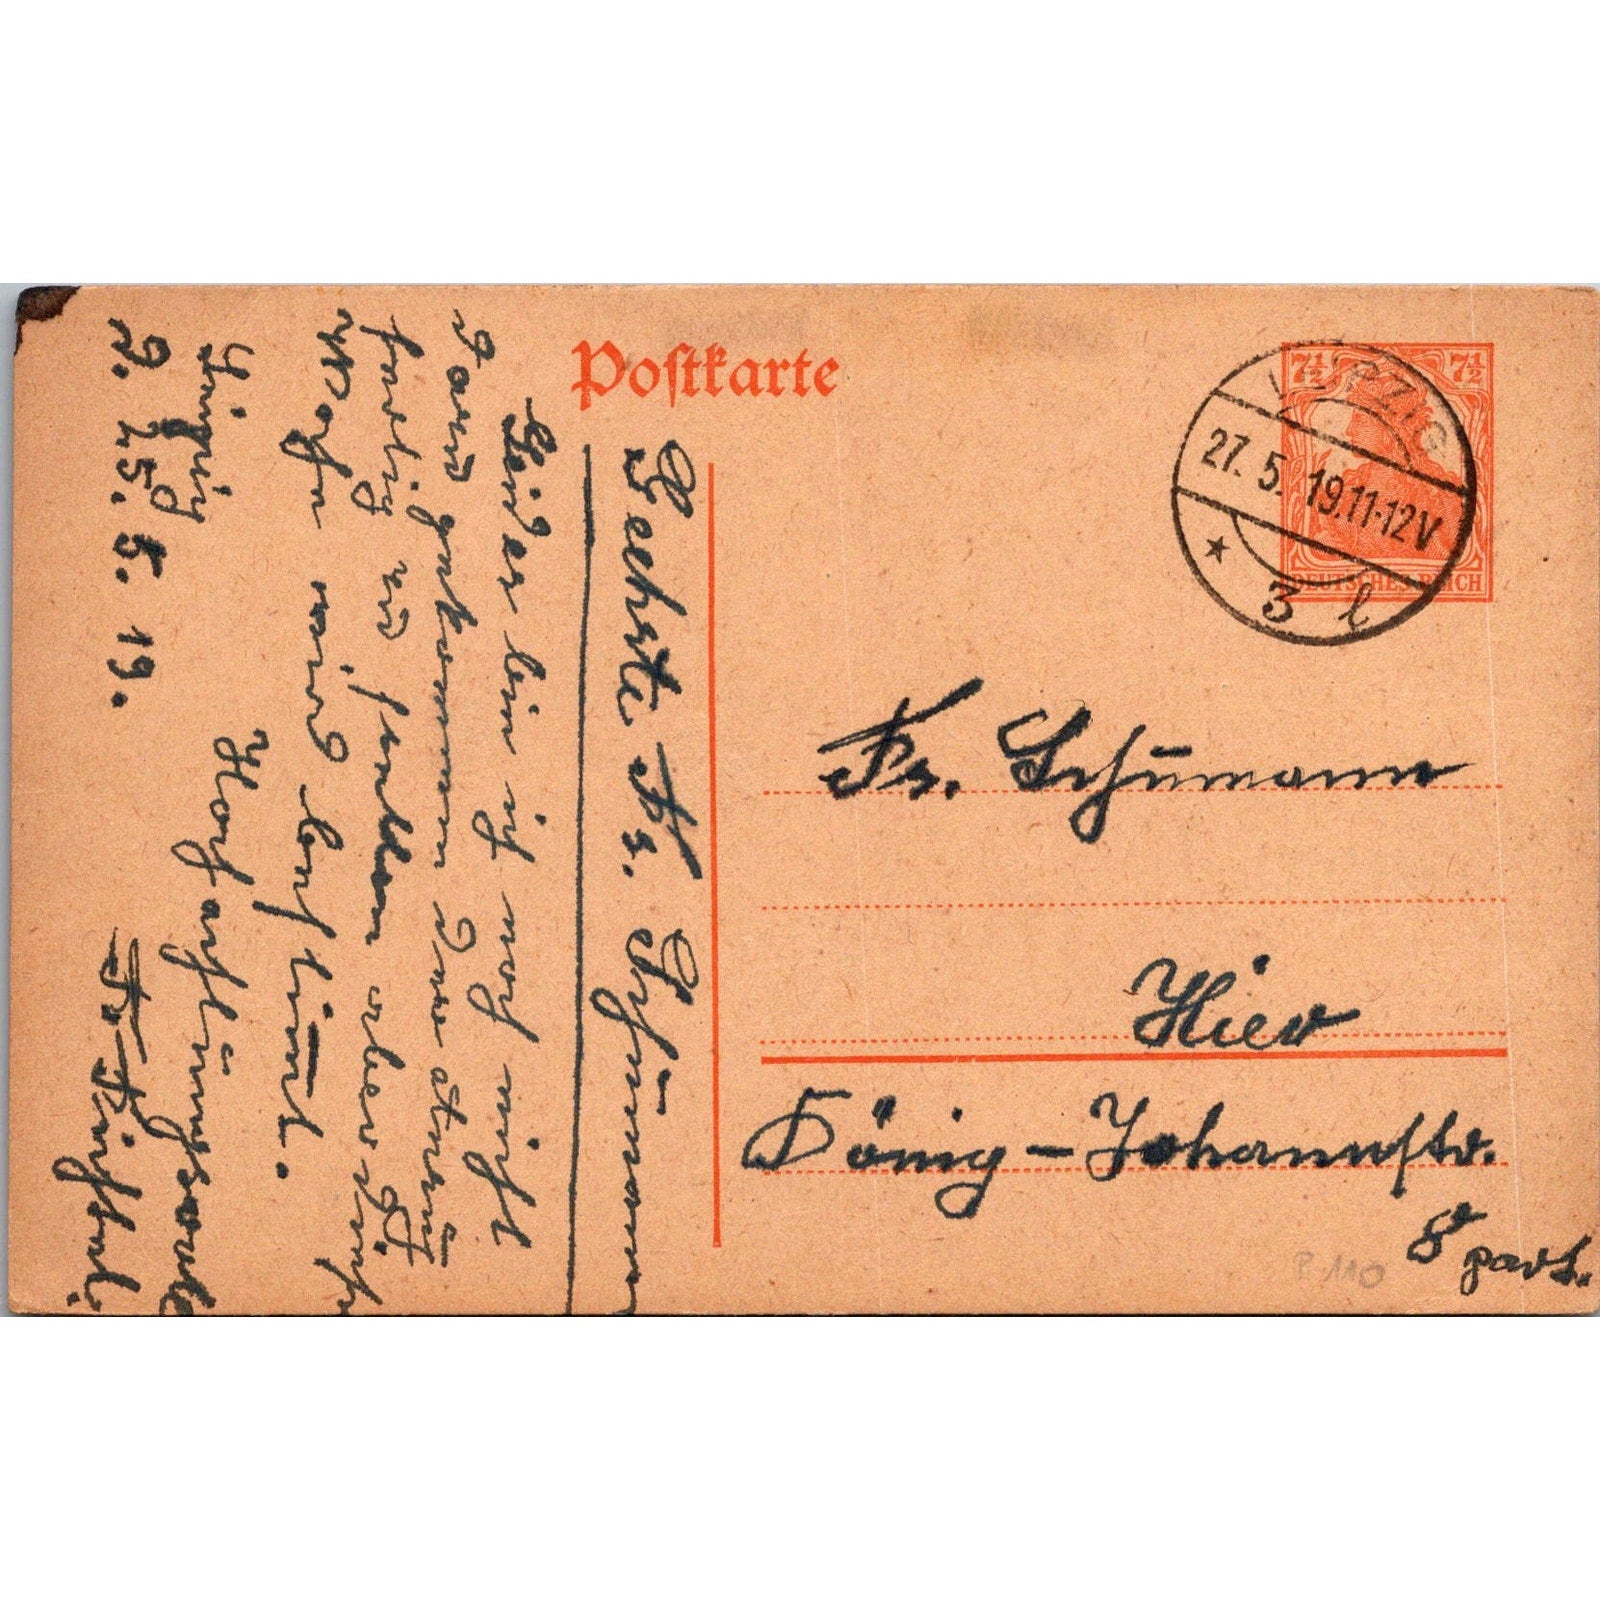 Postkarte
7½ 7½
DEUTSCHES REICH
LEIPZIG
27. 5. 19. 11-12 V
* 3 l
Fr. Schumann
Hier
König-Johannstr.
8 part.
P 110
Geehrte Fr. Schumann
Leider bin ich noch nicht
dazu gekommen
fertig zu
Woche wird bestimmt.
Hochachtungsvoll
Fr.
Leipzig
d. 25. 5. 19.